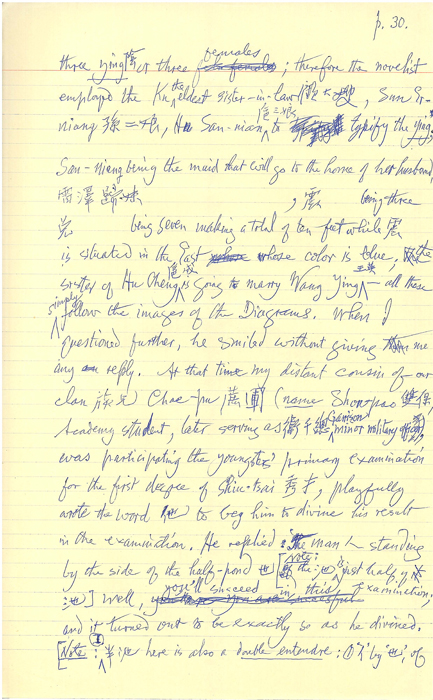 p. 30.
three ying陰 or three females; therefore the novelist
employed the Ku the eldest sister-in-law 顧大嫂, Sun Er-
niang 孫二娘, Hu San-nian 扈三娘 to typify the ying,
San-niang being the maid that will go to the home of her husband,
雷澤歸妹, 震 being three
兌 being seven making a total of ten feet while 震
is situated in the East whose color is blue, the
sister of Hu Cheng 扈成 is going to marry Wang Ying 王英 — all these
simply follow the images of the Diagrams. When I
questioned further, he smiled without giving me
any reply. At that time my distant cousin of our
clan 族兄 Chae-pu (name Shong-pao 雙保,
Academy student, later serving as 衛千總 Garrison minor military officer)
was participating the youngsters' primary examination
for the first degree of Shiu-tsai 秀才, playfully
wrote the word 他 to beg him to divine his result
in the examination. He replied: "The man 亻 standing
by the side of the half-pond 也 [Note: the 也 is just half of
池] Well, you'll succeed in this examination,"
and it turned out to be exactly so as he divined.
[Note: 半池 here is also a double entendre: ① by "也", of